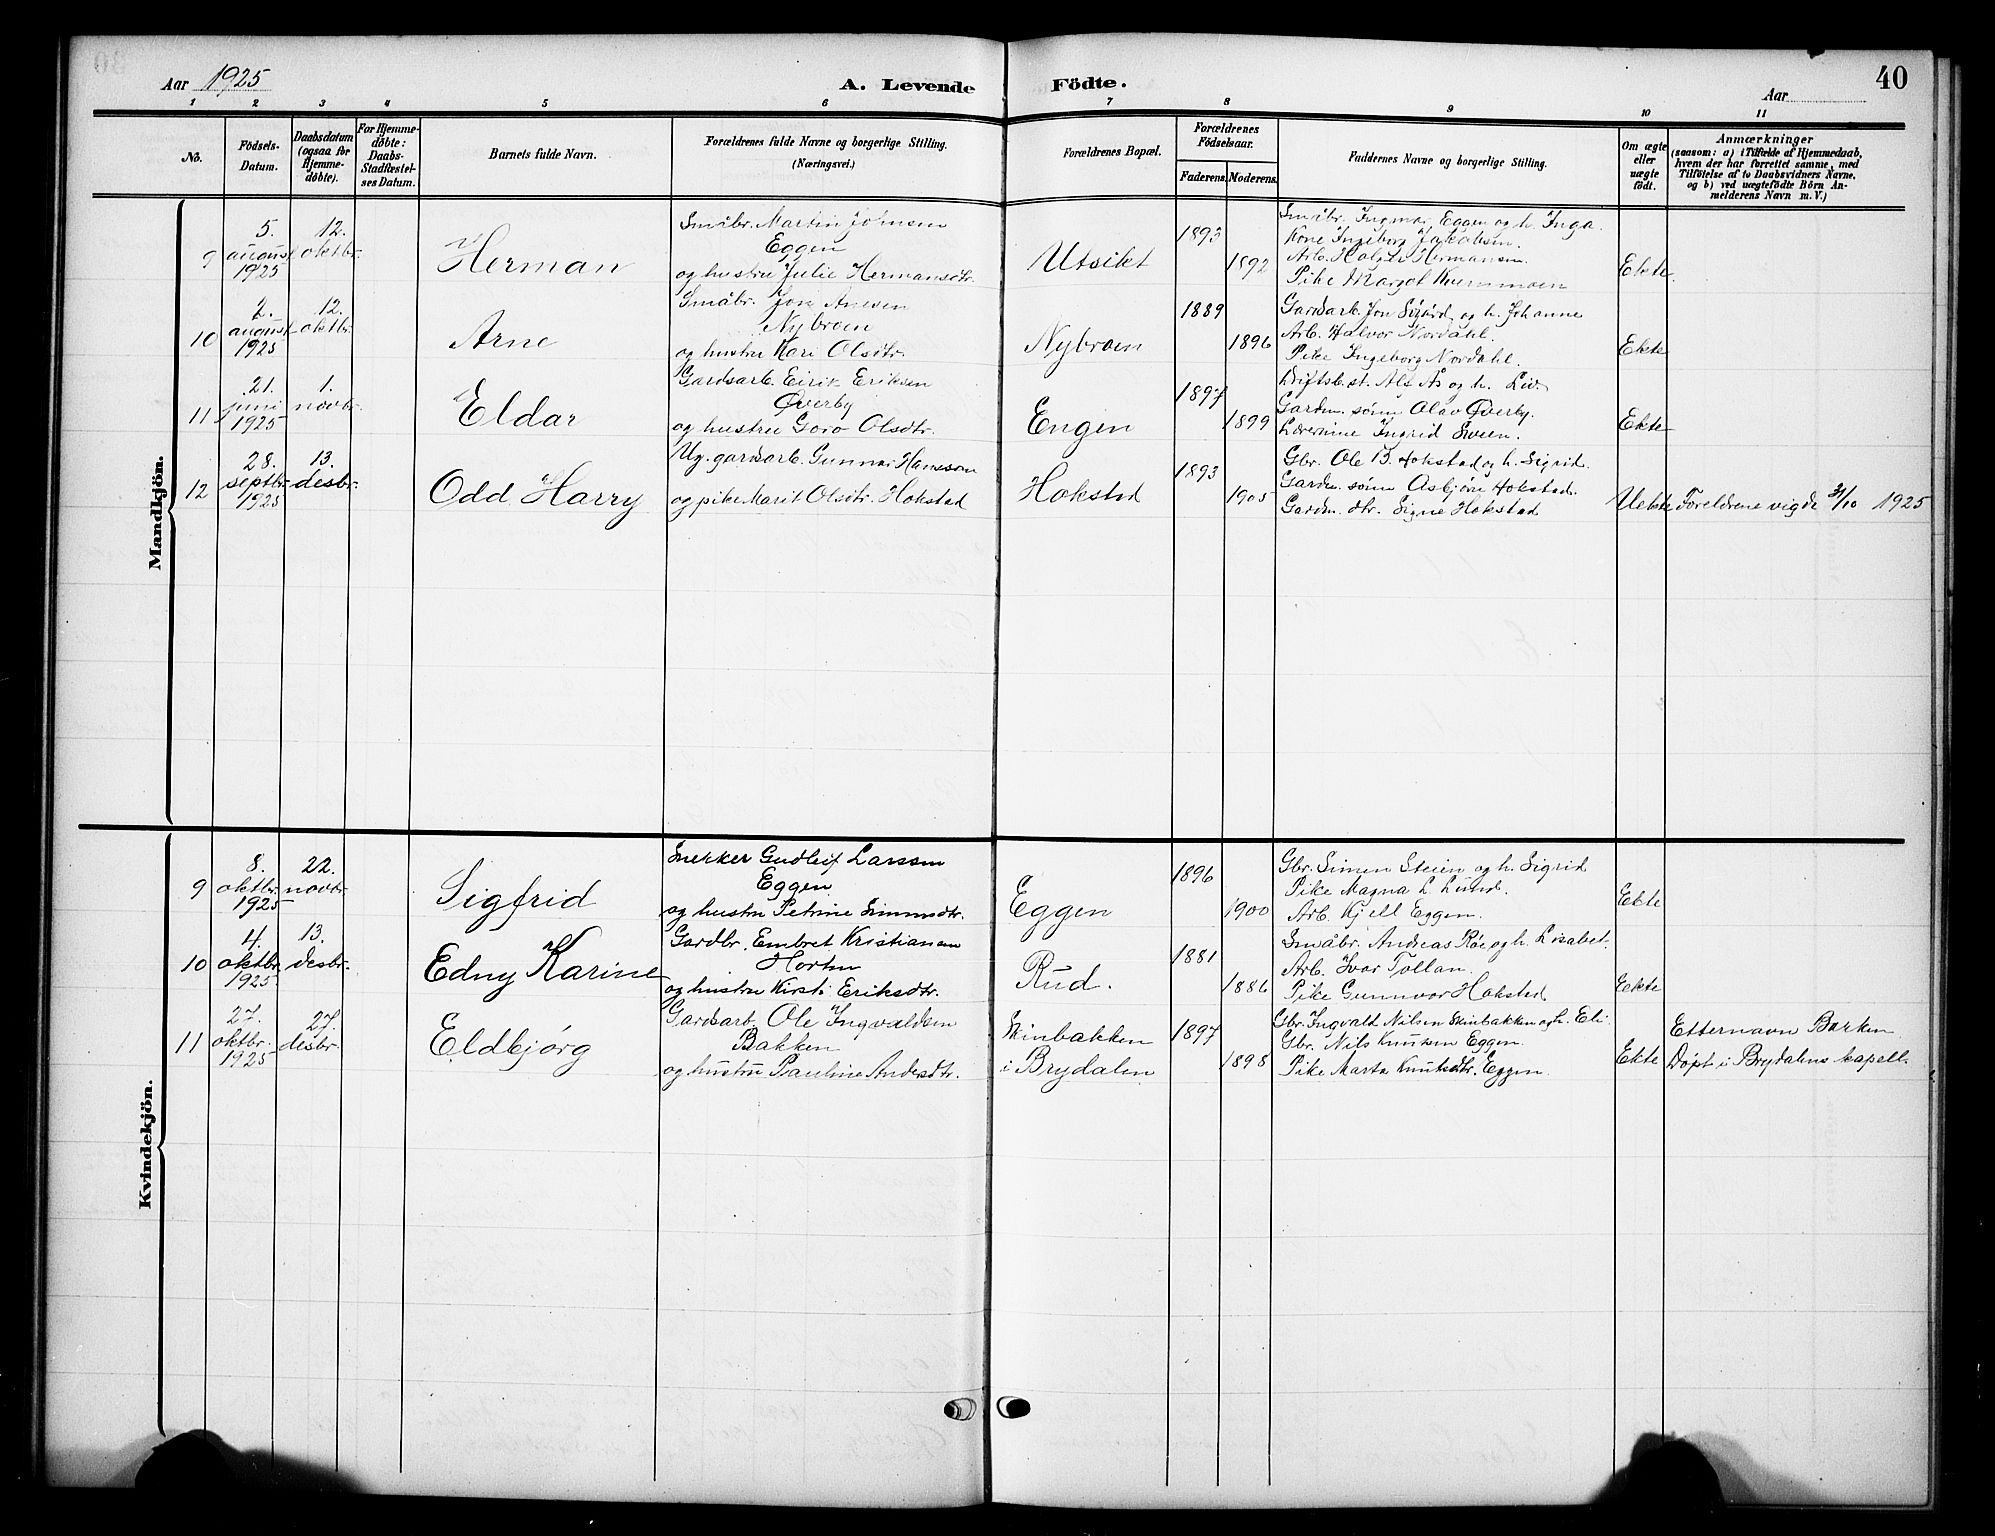 Aar 1925
A. Levende Födte.
Aar
40
1 2 3 4 5 6 7 8 9 10 11
No.
Födsels-Datum.
Daabsdatum (ogsaa for Hjemme-døbte).
For Hjemme-døbte: Daabs-Stadfæstel-ses Datum.
Barnets fulde Navn.
Forældrenes fulde Navne og borgerlige Stilling. (Næringsvei.)
Forældrenes Bopæl.
Forældrenes Födselsaar.
Faderens. Moderens.
Faddernes Navne og borgerlige Stilling.
Om ægte eller uægte födt.
Anmærkninger
(saasom: a) i Tilfælde af Hjemmedaab,
hvem der har forrettet samme, med
Tilföielse af to Daabsvidners Navne,
og b) ved uægtefödte Börn An-
melderens Navn m. V.)
Mandkjön.
9
5. august 1925
12. oktbr.
Herman
Småbr. Martin Johnsen
Eggen
og hustru Julie Hermansdtr.
Utsikt
1893
1892
Småbr. Ingmar Eggen og h. Inga.
Kone Ingeborg Jakobsen.
Arb. Holger Hermansen.
Pike Margot Kvernmoen
Ekte
10
2. august 1925
12. oktbr.
Arne
Småbr. Jon Anesen
Nybroen
og hustru Kari Olsdtr.
Nybroen
1889
1896
Gardsarb. Jon Sigård og h. Johanne
Arb. Halvor Nordahl.
Pike Ingeborg Nordahl.
Ekte
11
21. juni 1925
1. novbr.
Eldar
Gardsarb. Eirik Eriksen
Øverby
og hustru Goro Olsdtr.
Engen
1897
1899
Driftsbest. Als Ås og h. Liv.
Gardm. sønn Olav Øverby.
Lærerinne Ingrid Sveen.
Ekte
12
28. septbr. 1925
13. desbr.
Odd Harry
Ug. gardsarb. Gunnar Hansson
og pike Marit Olsdtr. Hokstad
Hokstad
1893
1905
Gbr. Ole B. Hokstad og h. Sigrid.
Gardm. sønn Asbjørn Hokstad.
Gardm. dtr. Signe Hokstad
Uekte
Foreldrene vigde 31/10 1925
Kvindekjön.
9
8. oktbr. 1925
22. novbr.
Sigfrid
Snekker Gudleif Larssen
Eggen
og hustru Petrine Simensdtr.
Eggen
1896
1900
Gbr. Simen Steien og h. Sigrid
Pike Magna L. Lund.
Arb. Kjell Eggen.
Ekte
10
4. oktbr. 1925
13. desbr.
Edny Karine
Gardbr. Embret Kristiansen
Horten
og hustru Kirsti Eriksdtr.
Rud.
1881
1886
Småbr. Andreas Røe og h. Lisabet.
Arb. Ivar Tollan.
Pike Gunnvor Hokstad
Ekte
11
27. oktbr. 1925
27. desbr.
Eldbjørg
Gardsarb. Ole Ingvaldsen
Bakken
og hustru Pauline Andersdtr.
Skinbakken
i Brydalen
1897
1898
Gbr. Ingvald Nilsen Skinbakken og h. Eli.
Gbr. Nils Knutsen Eggen.
Pike Marta Knutsdtr. Eggen
Ekte
Etternavn Barken
Døpt i Brydalens kapell.